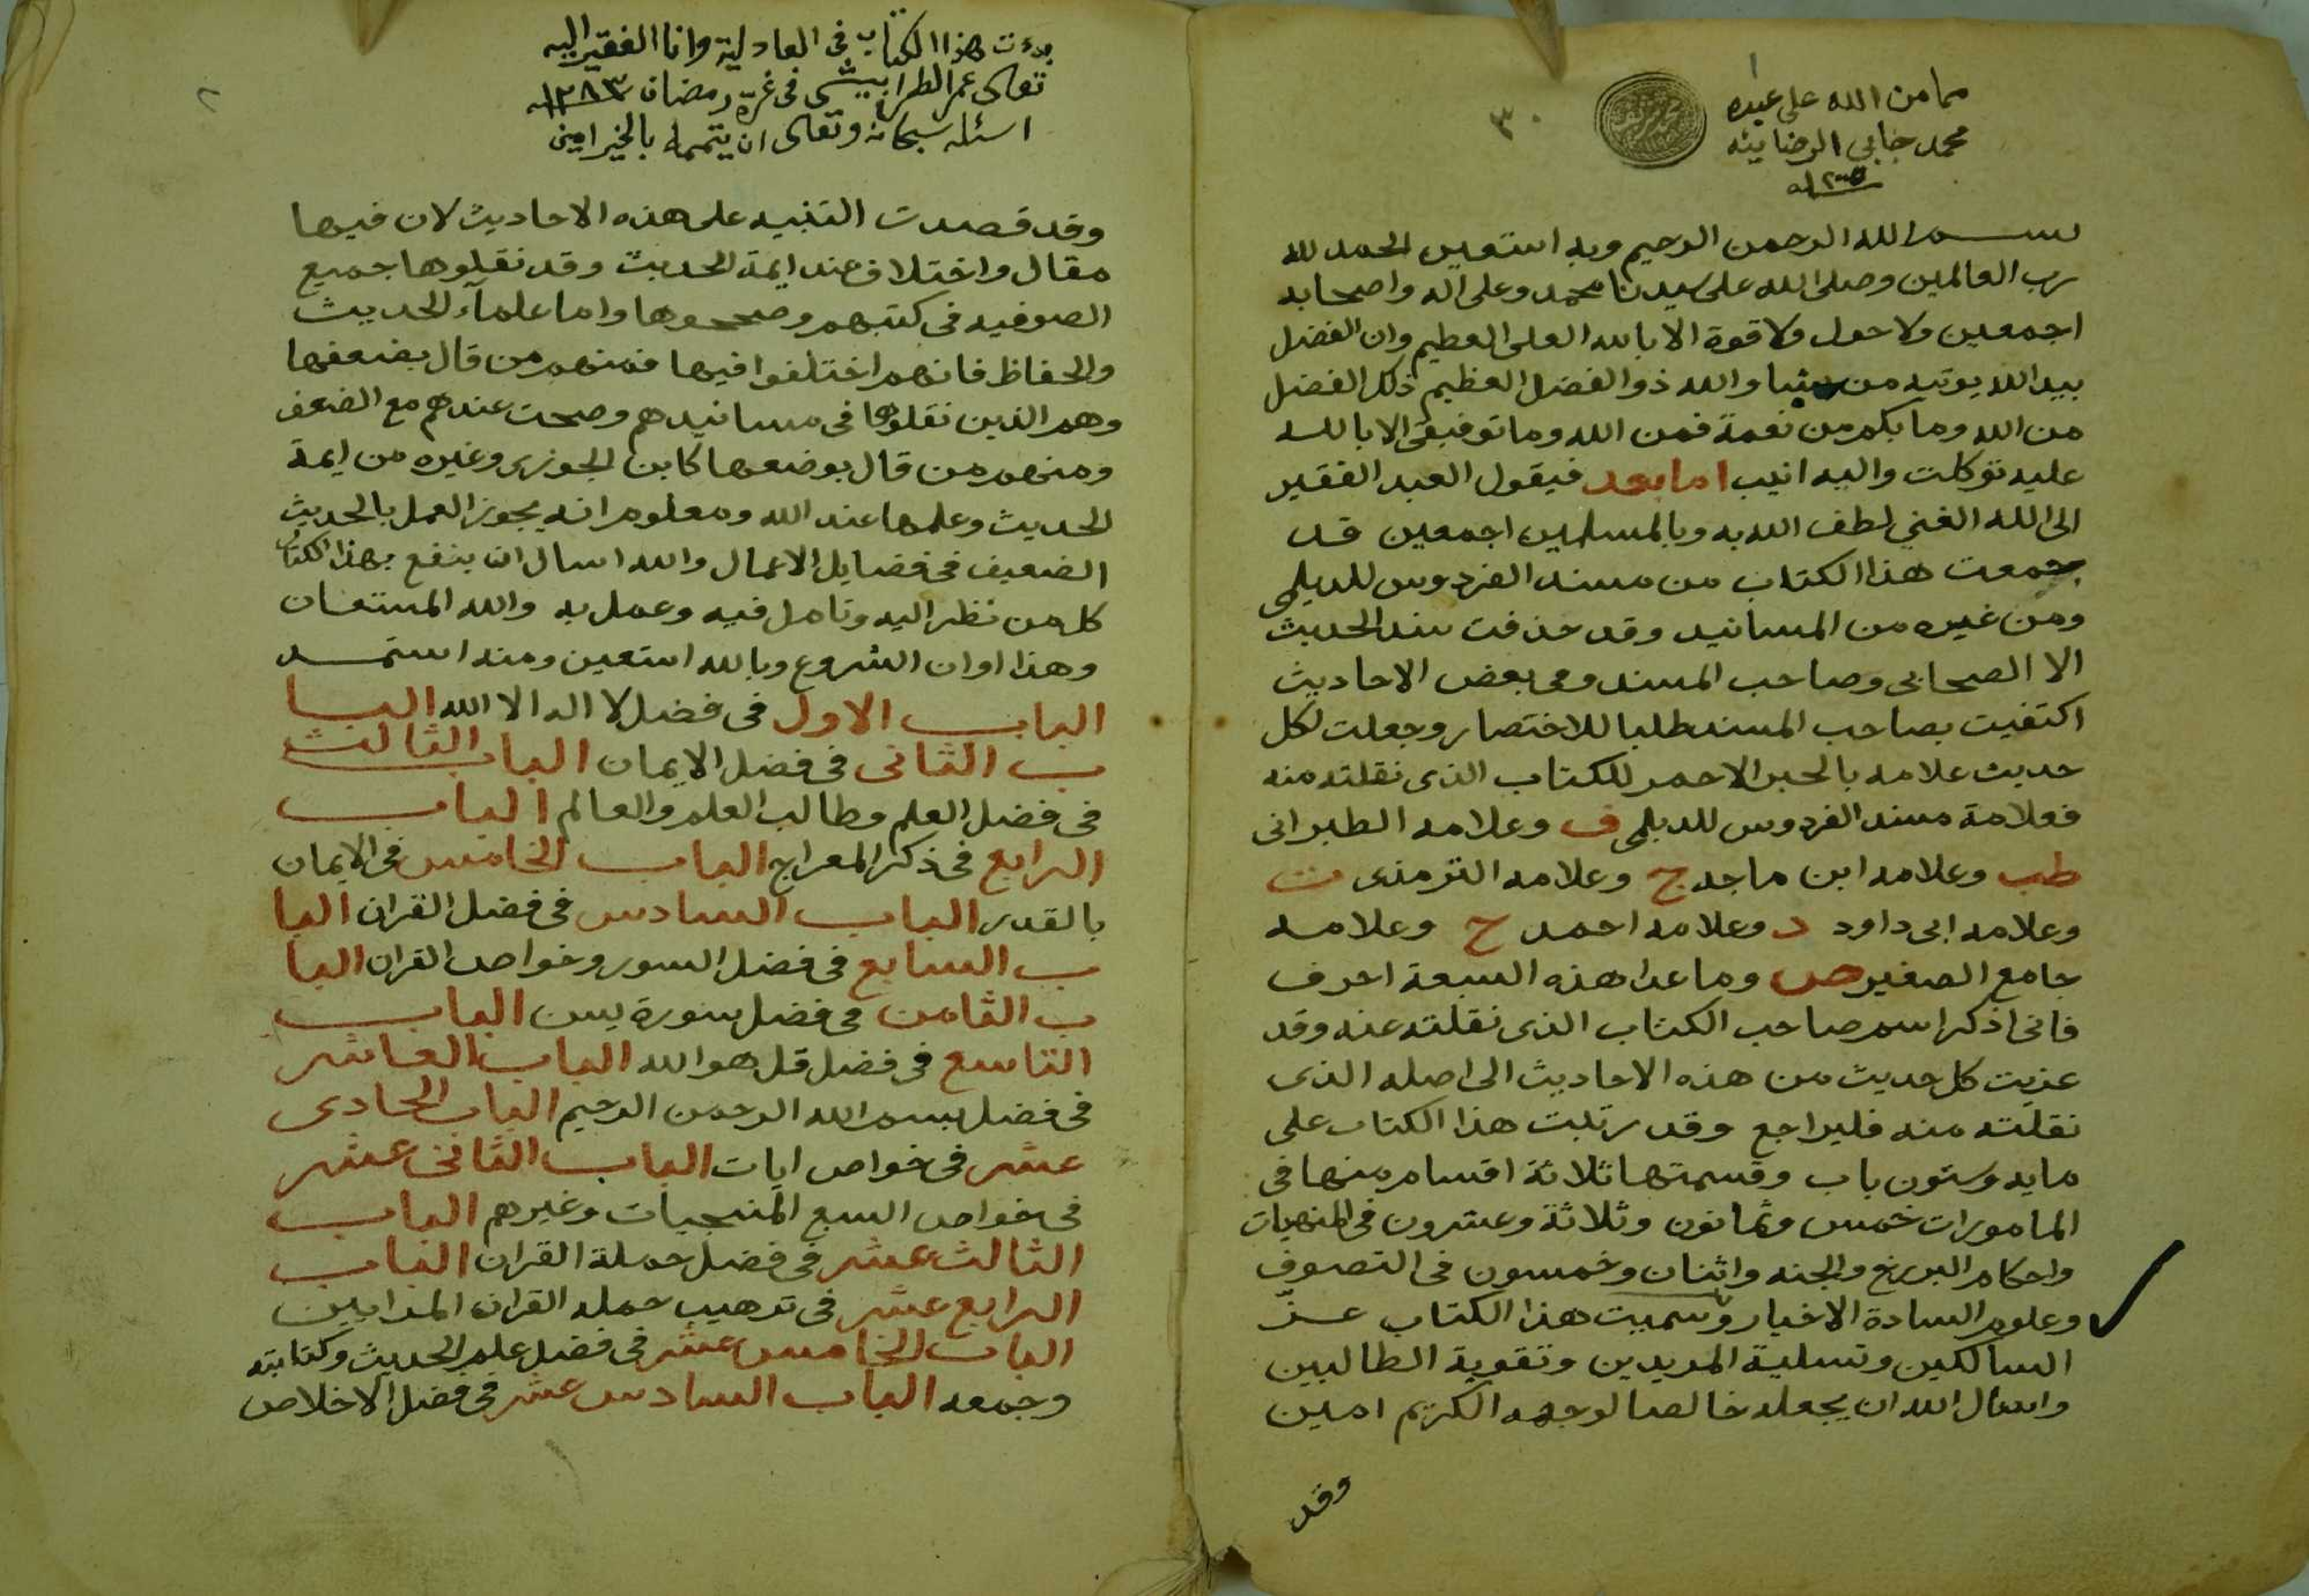 مما من الله على عبده
محمد جابي الرضا
بسم الله الرحمن الرحيم وبه استعين الحمد لله
رب العالمين وصلى الله على سيدنا محمد وعلى اله واصحابه
اجمعين ولا حول ولا قوة الا بالله العلى العظيم وان الفضل
بيد الله يوتيه من يشا والله ذو الفضل العظيم ذلك الفضل
من الله وما بكم من نعمة فمن الله وما توفيقى الا بالله
عليه توكلت واليه انيب اما بعد فيقول العبد الفقير
الى الله الغني لطف الله به وبالمسلمين اجمعين قد
جمعت هذا الكتاب من مسند الفردوس للديلمى
ومن غيره من المسانيد وقد حذفت سند الحديث
الا الصحابى وصاحب المسند وفى بعض الاحاديث
اكتفيت بصاحب المسند طلبا للاختصار وجعلت لكل
حديث علامه بالحبر الاحمر للكتاب الذى نقلته منه
فعلامة مسند الفردوس للديلمى ف وعلامه الطبرانى
طب وعلامه ابن ماجه ج وعلامه الترمذى ت
وعلامه ابى داود د وعلامه احمد ح وعلامه
جامع الصغير ص وما عدا هذه السبعة احرف
فانى اذكر اسم صاحب الكتاب الذى نقلته عنه وقد
عزيت كل حديث من هذه الاحاديث الى اصله الذى
نقلته منه فليراجع وقد رتبت هذا الكتاب على
مايه وستون باب وقسمتها ثلاثة اقسام منها فى
المامورات خمس وثمانون وثلاثة وعشرون فى المنهيات
واحكام البرزخ والجنه واثنان وخمسون فى التصوف
وعلوم السادة الاخيار وسميت هذا الكتاب عز
السالكين وتسلية المريدين وتقوية الطالبين
واسال الله ان يجعله خالصا لوجهه الكريم امين
وقد
بدءت هذا الكتاب فى العادلية وانا الفقير اليه
تعالى عمر الطرابيشى فى غرة رمضان ١٢٨٣
اسئله سبحانه وتعالى ان يتممه بالخير امين
وقد قصدت التنبيه على هذه الاحاديث لان فيها
مقال واختلاف عند ايمة الحديث وقد نقلوها جميع
الصوفيه فى كتبهم وصححوها واما علمآء الحديث
والحفاظ فانهم اختلفوا فيها فمنهم من قال بضعفها
وهم الذين نقلوها فى مسانيدهم وصحت عندهم مع الضعف
ومنهم من قال بوضعها كابن الجوزى وغيره من ايمة
الحديث وعلمها عند الله ومعلوم انه يجوز العمل بالحديث
الضعيف فى فضايل الاعمال والله اسال ان ينفع بهذا الكتاب
كل من نظر اليه وتامل فيه وعمل به والله المستعان
وهذا اوان الشروع وبالله استعين ومنه استمد
الباب الاول فى فضل لا اله الا الله البا
ب الثانى فى فضل الايمان الباب الثالث
فى فضل العلم وطالب العلم والعالم الباب
الرابع فى ذكر المعراج الباب الخامس فى الايمان
بالقدر الباب السادس فى فضل القران البا
ب السابع فى فضل السور وخواص القران البا
ب الثامن فى فضل سورة يس الباب
التاسع فى فضل قل هو الله الباب العاشر
فى فضل بسم الله الرحمن الرحيم الباب الحادى
عشر فى خواص ايات الباب الثانى عشر
فى خواص السبع المنجيات وغيرهم الباب
الثالث عشر فى فضل حملة القران الباب
الرابع عشر فى ترهيب حمله القران المرايين
الباب الخامس عشر فى فضل علم الحديث وكتابته
وجمعه الباب السادس عشر فى فضل الاخلاص